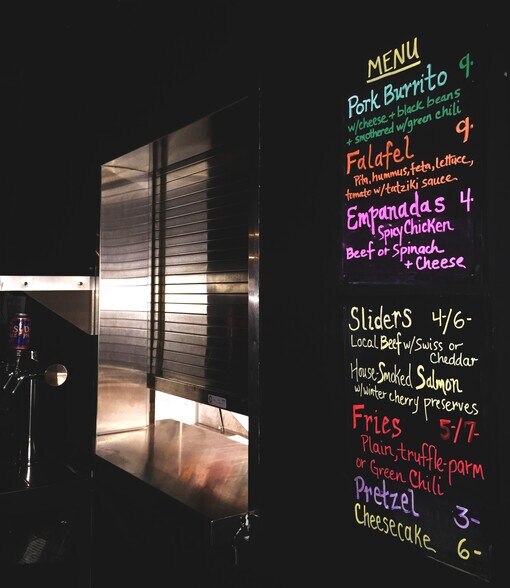 MENU
Pork Burrito 9.
w/cheese + black beans
+ smothered w/green chili
Falafel 9.
Pita, hummus, feta, lettuce,
tomato w/tatziki sauce
Empanadas 4.
Spicy Chicken
Beef or Spinach
+ Cheese
Sliders 4/6-
Local Beef w/Swiss or
Cheddar
House-Smoked Salmon
w/winter cherry preserves
Fries 5-/7-
Plain, truffle-parm
or Green Chili
Pretzel 3-
Cheesecake 6-